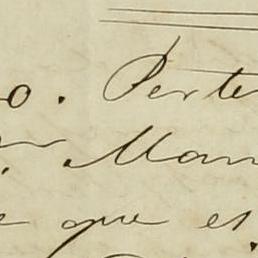 o. Perte
. Man
e que es